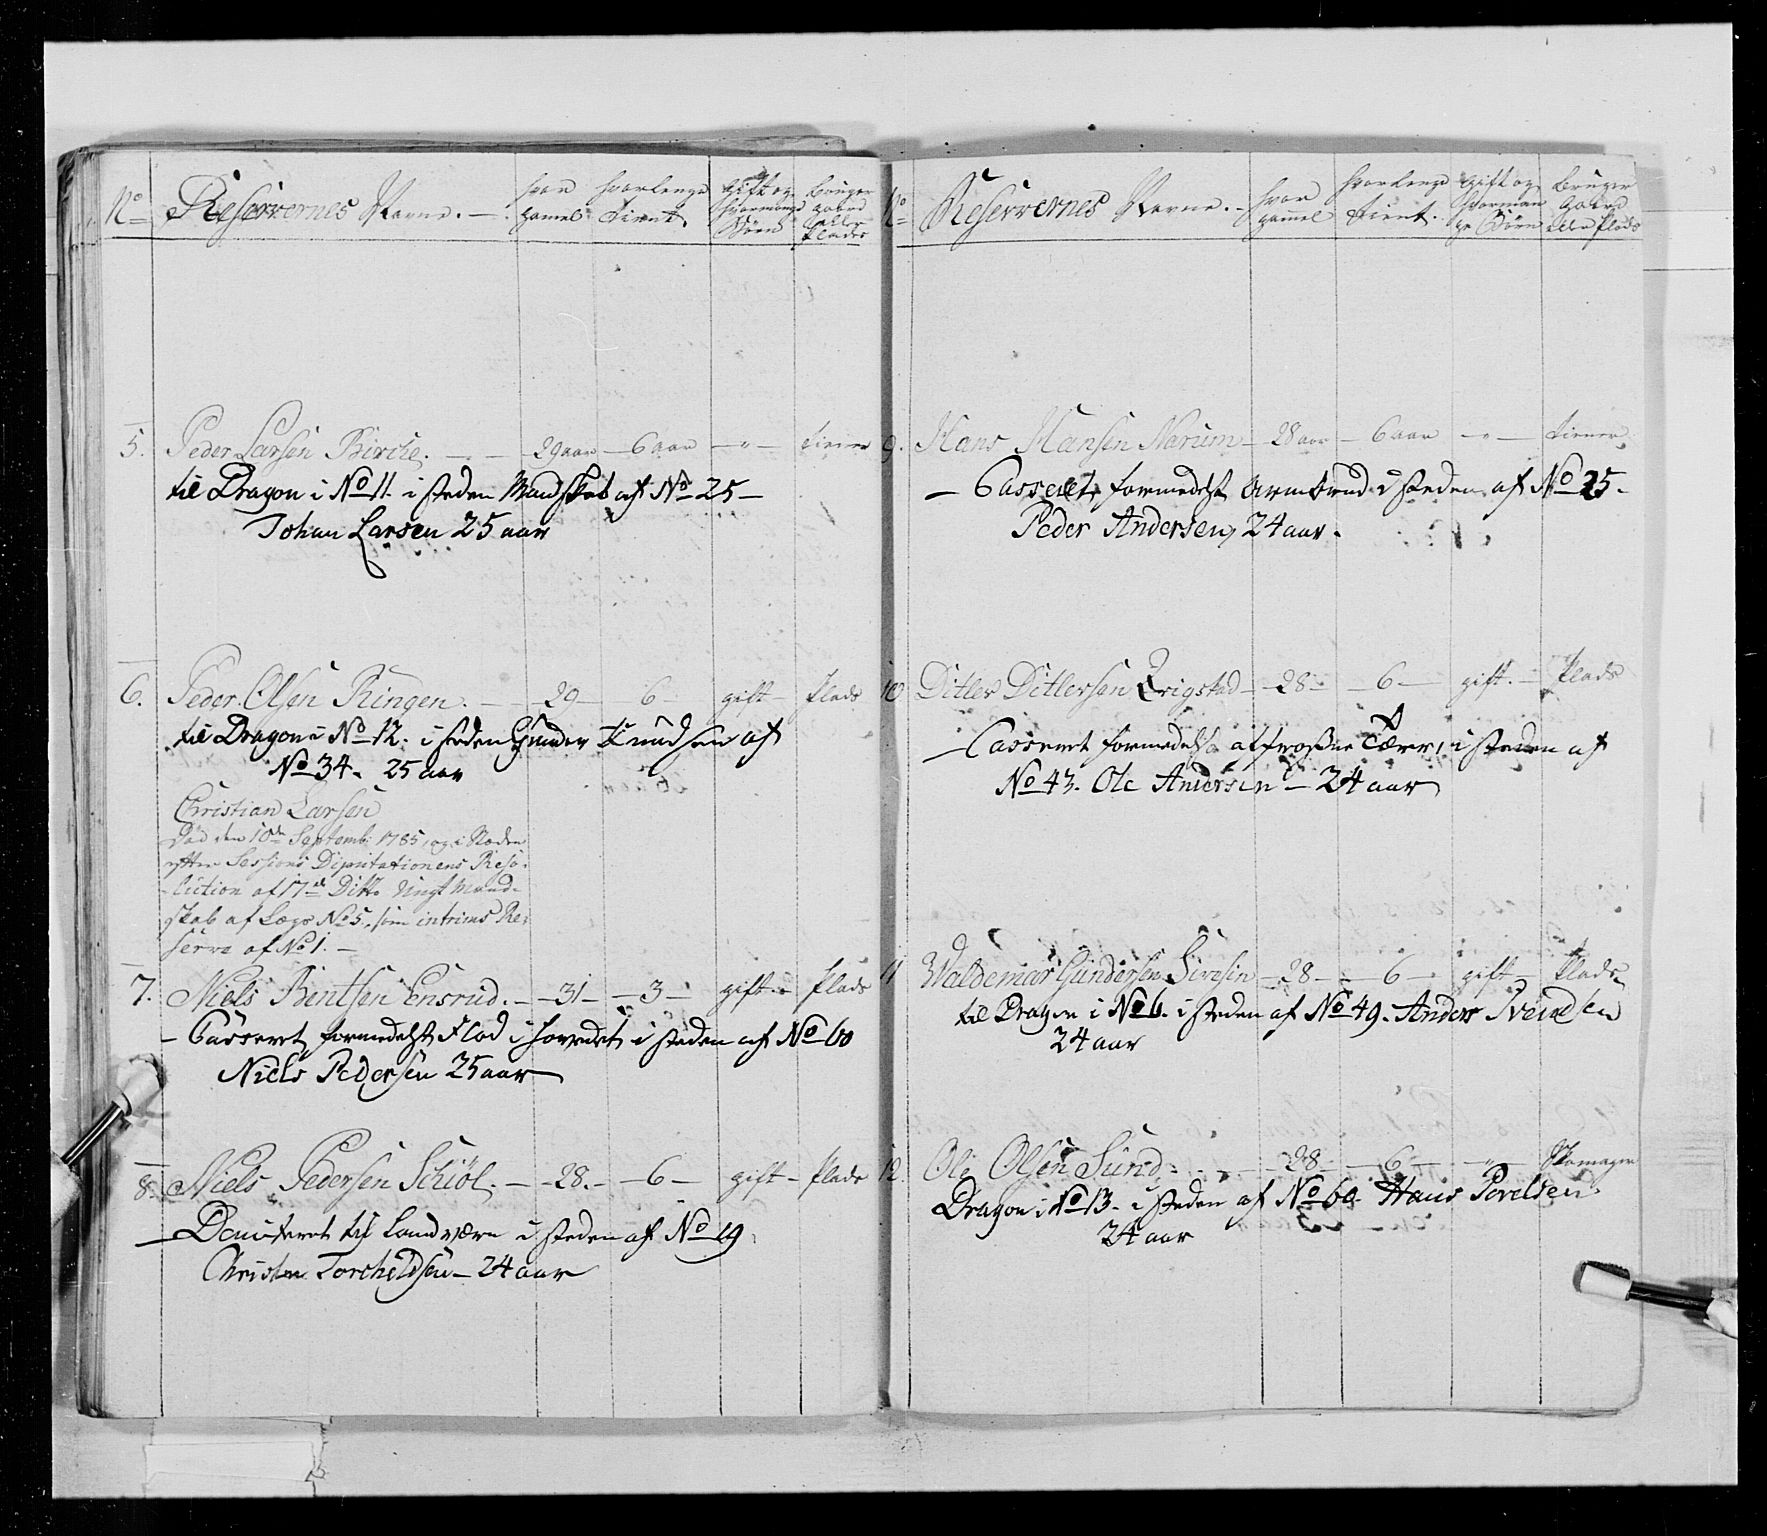 No Reservernes Navne. hvor gamel hvorlenge tient gift og hvormange Børn bruger gaard eller Plads
5. Peder Larsen Birche. 29 aar 6 aar - " - tiener
til Dragon i No 11. i steden Mandskab af No 25
Johan Larsen 25 aar
6. Peder Olsen Ringen. 29 6 gift Plads
til Dragon i No 12. i steden Gunder Knudsen af
No 34. 25 aar
Christian Larsen
Død den 10de Septemb: 1785, og i Steden
efter Sessions Deputationens Reso-
lution af 17de Ditto Ungt Mand-
skab af Lægs No 5, som intrims Re-
serve af No 1.
7. Niels Bentsen Ensrud. 31 3 gift Plads
Casseret formedelst Flod i hovedet i steden af No 60
Niels Pedersen 25 aar
8. Niels Pedersen Schiøl. 28. 6 gift Plads
Demiteret til Landværn i steden af No 19
Christen Torchildsen 24 aar
No Reservernes Navne. hvor gammel hvorlenge tient. gift og hvorman ge Børn bruger gaard eller plads
9. Hans Hansen Narum 28 aar 6 aar - " - tiener
Casseret formedelst i steden af No 25.
Peder Andersen, 24 aar.
10 Ditlev Ditlevsen 28 6 gift. Plads
Casseret formedelst affrosne Tæer, i steden af
No 43. Ole Andersen 24 aar
11 Waldemar Gundersen 28 6 gift Plads
til Dragon i No 6. i steden af No 49. Anders Svendsen
24 aar
12. Ole Olsen Sund 28 6 " Skomager
Dragon i No 13. i steden af No 60. Hans Povelsen
24 aar